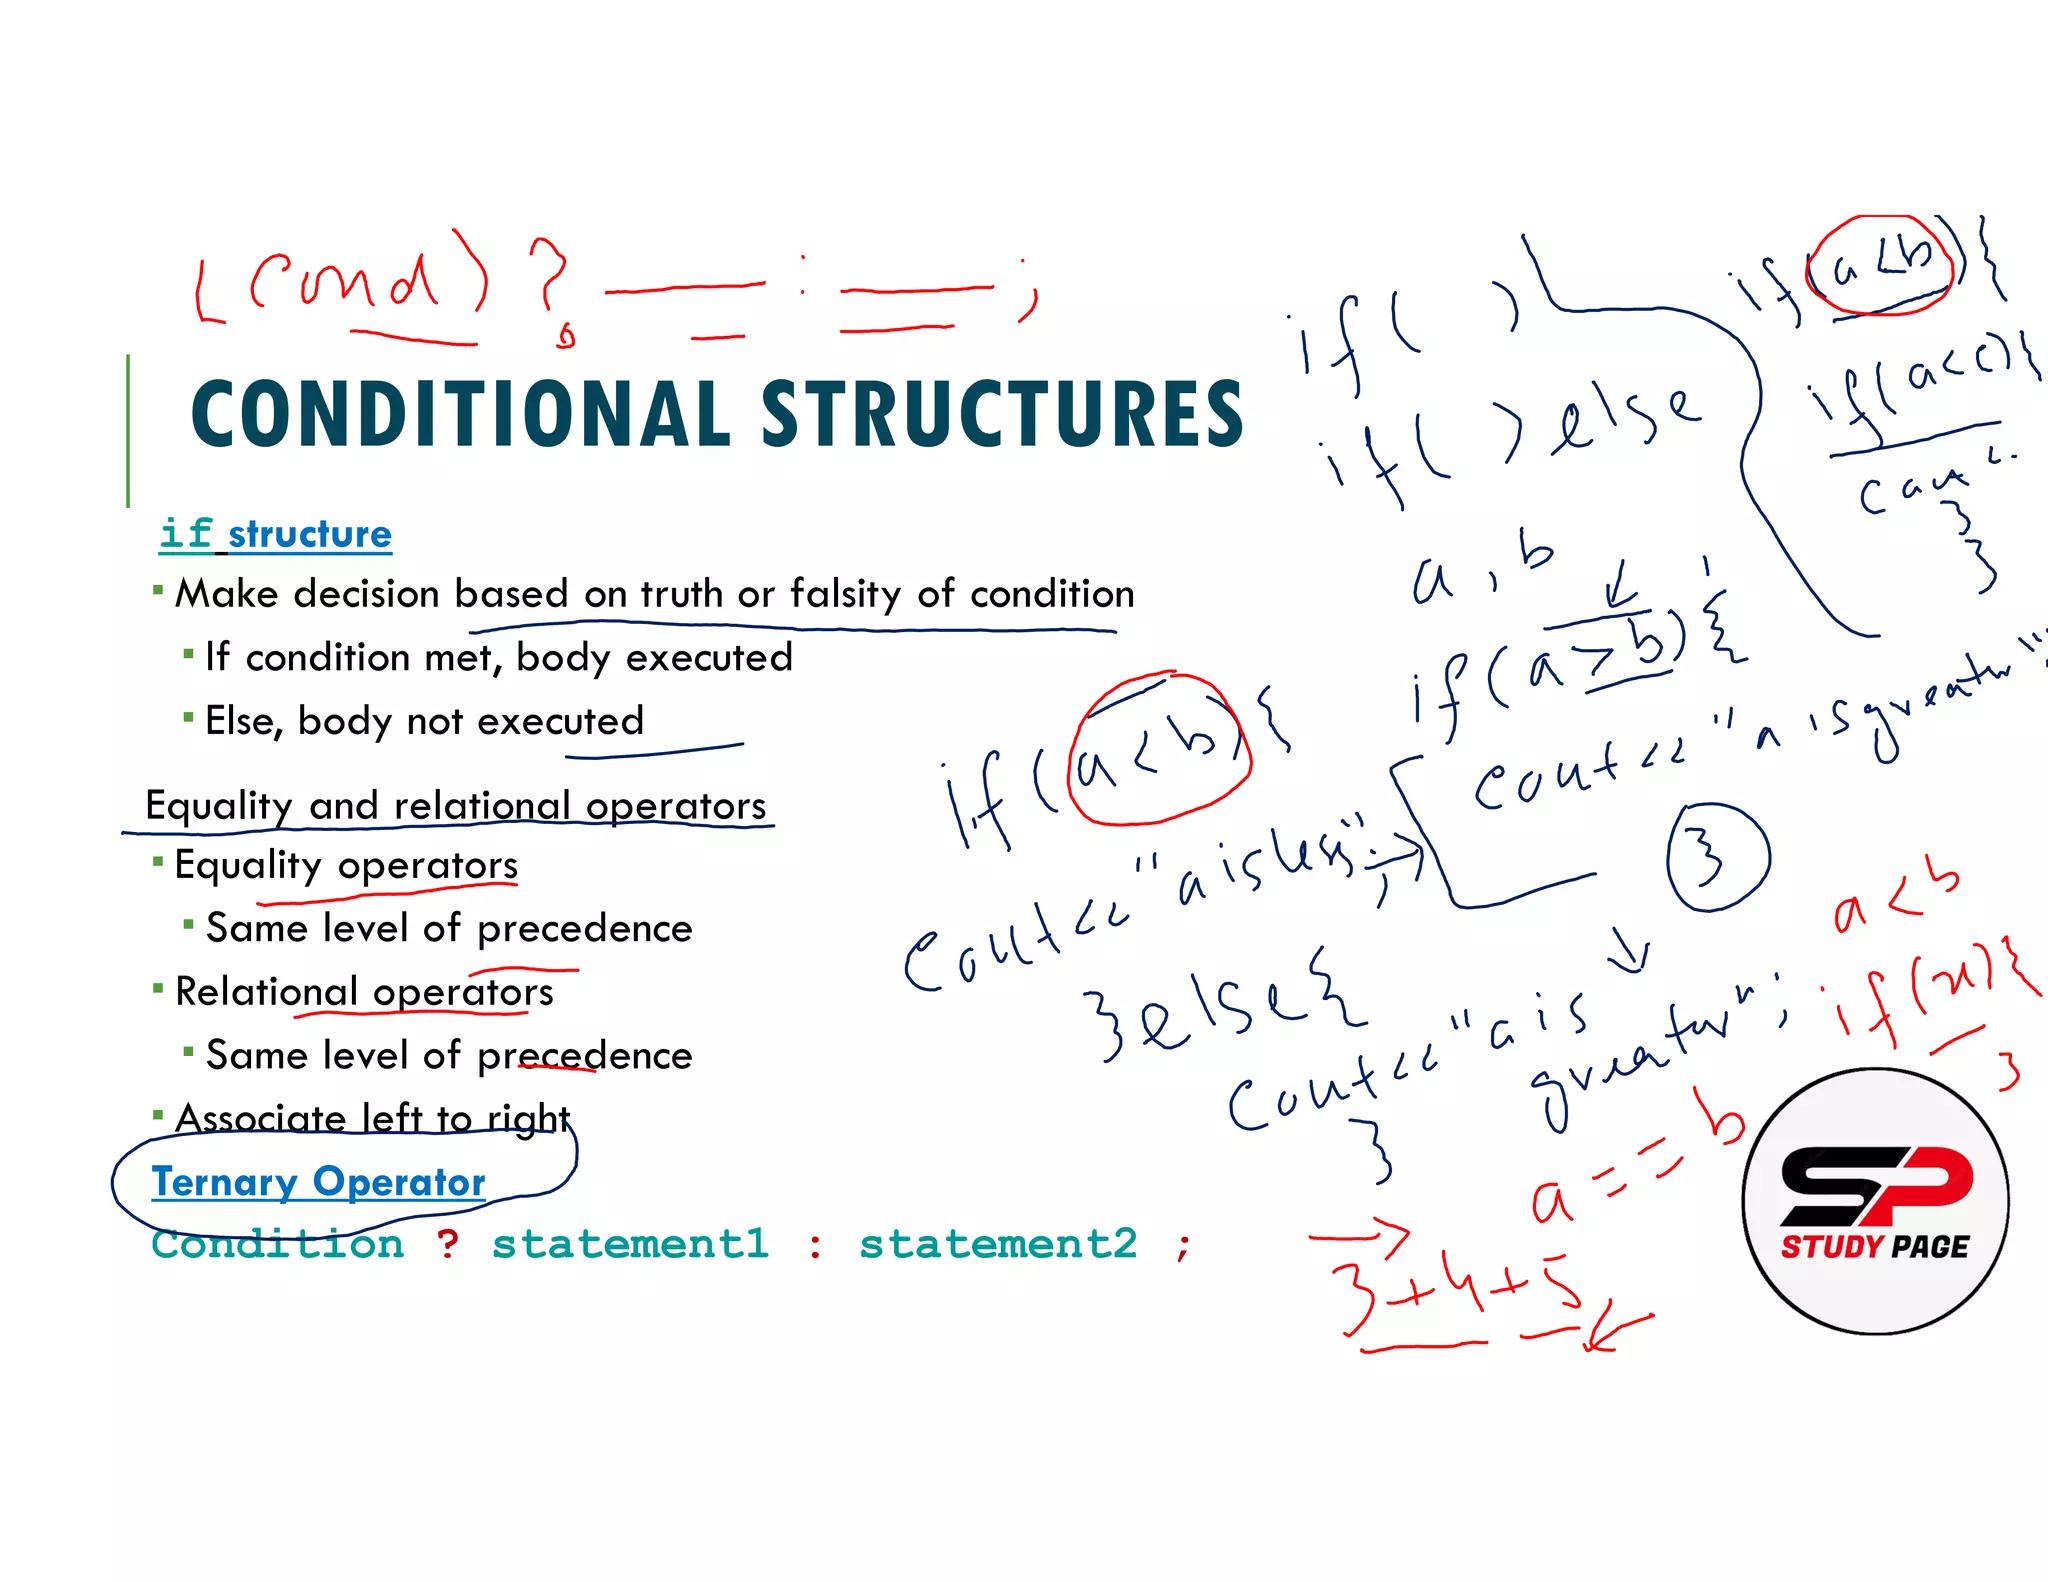 (Cond) ? — : — ;
CONDITIONAL STRUCTURES
if structure
Make decision based on truth or falsity of condition
If condition met, body executed
Else, body not executed
Equality and relational operators
Equality operators
Same level of precedence
Relational operators
Same level of precedence
Associate left to right
Ternary Operator
Condition ? statement1 : statement2 ;
if( )
if( ) else
if(a<b){
if(a<c){
}
}
a, b
if(a>b){
cout<<"a is greater";
}
if(a<b){
cout<<"a is less";
}else{
cout<<"a is
greater";
}
a<b
if(x){
}
a==b
3+4+5
SP
STUDY PAGE